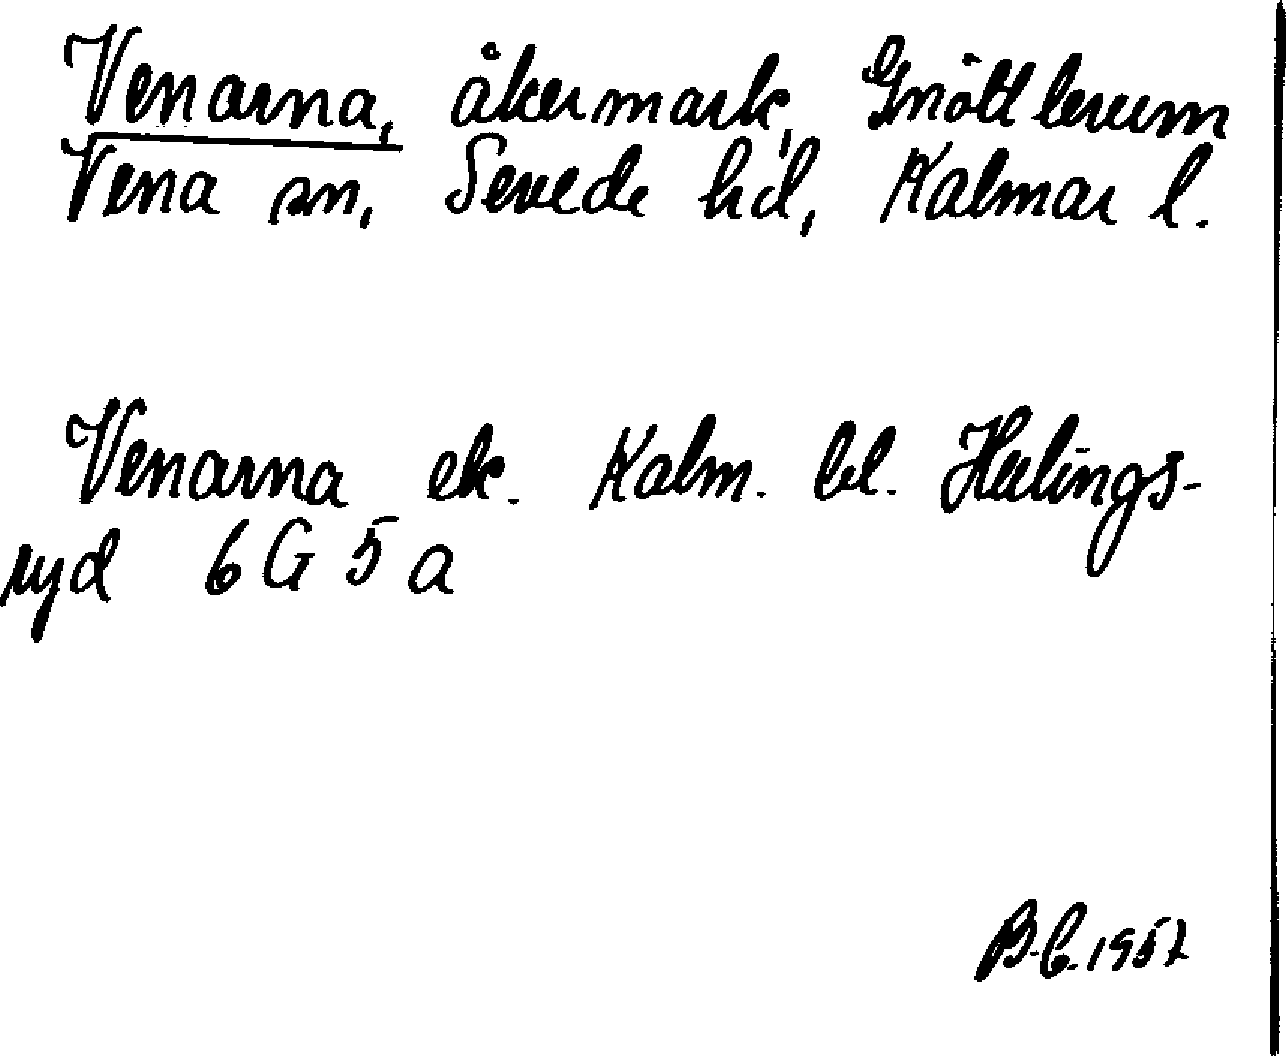 Venarna, åkermark, Gnöttlerum
Vena sn, Sevede hd, Kalmar l.
Venarna ek. Kalm. bl. Hulings-
ryd 6 G 5 a
B.C. 1952